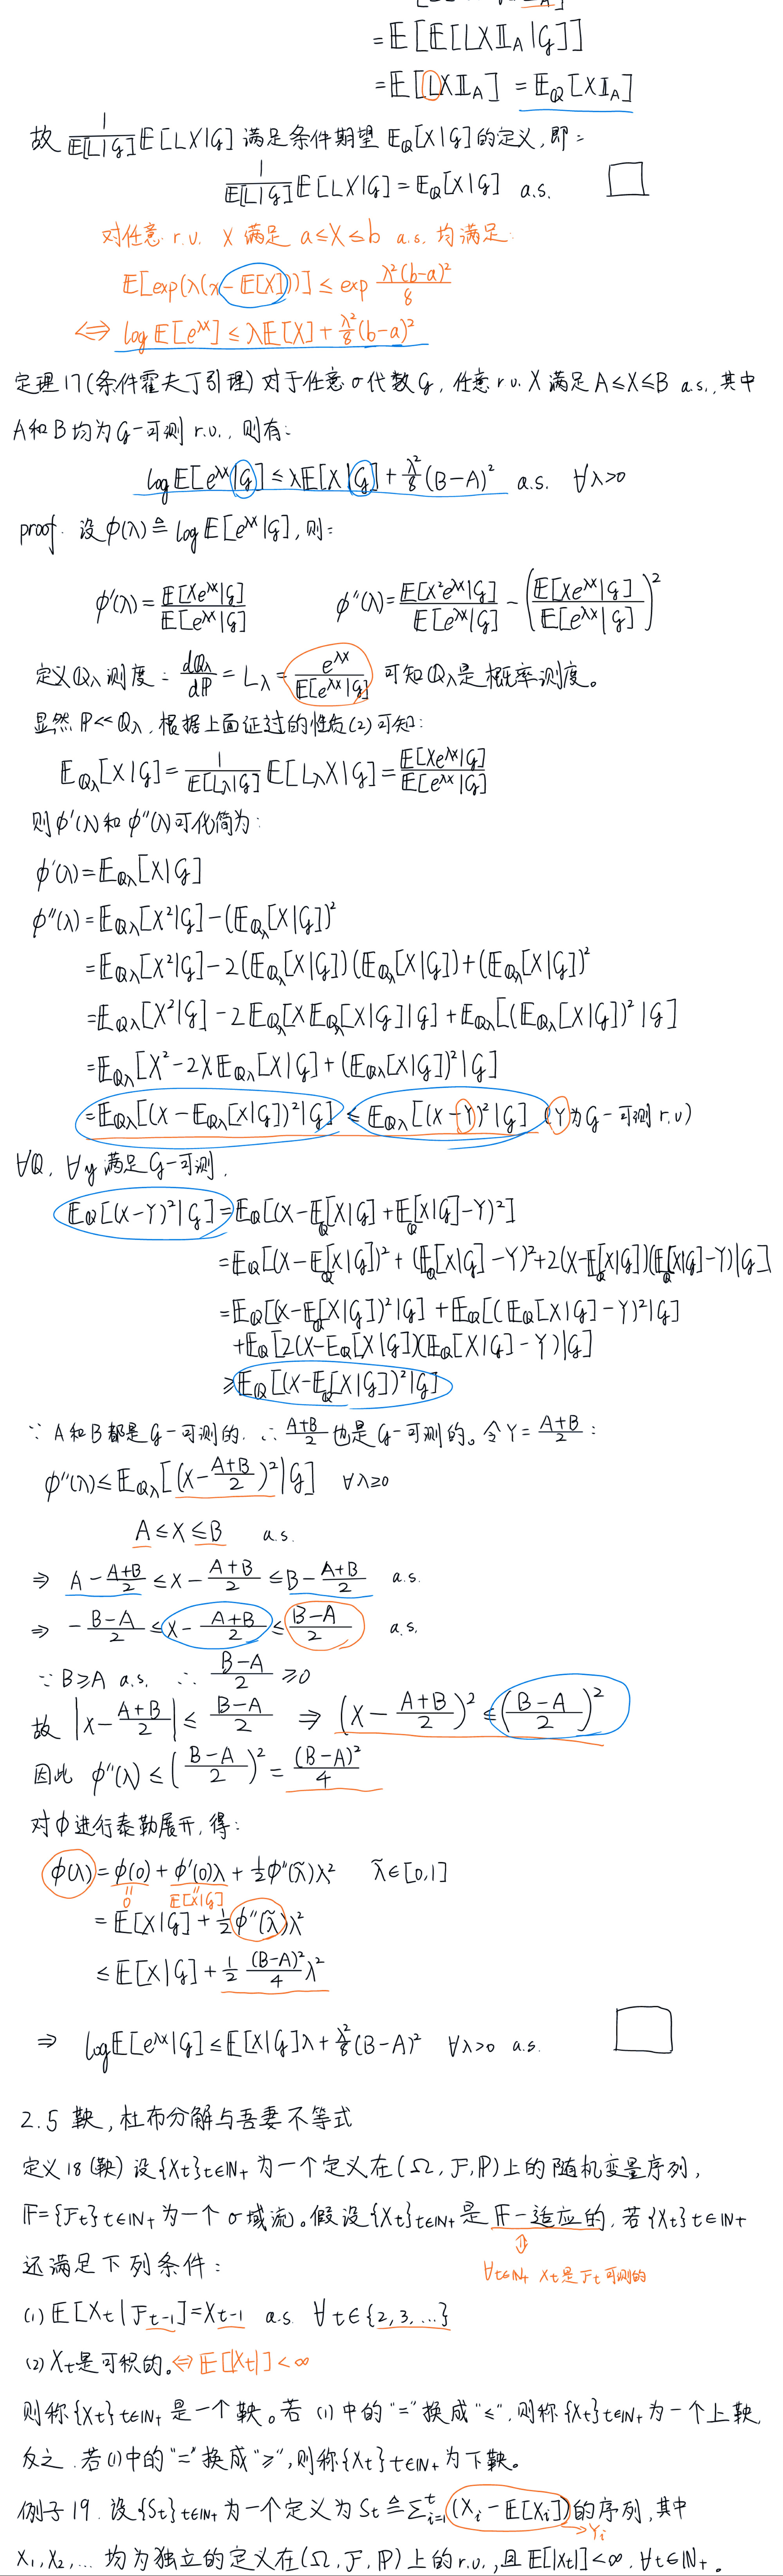 = E[E[LXI_A|G]]
= E[LXI_A] = E_Q[XI_A]
故 1/E[L|G] E[LX|G] 满足条件期望 E_Q[X|G]的定义,即:
1/E[L|G] E[LX|G] = E_Q[X|G] a.s. □
对任意 r.u. X 满足 a≤X≤b a.s. 均满足:
E[exp(λ(x-E[X]))] ≤ exp λ²(b-a)²/8
⇔ log E[e^{λx}] ≤ λE[X] + λ²/8 (b-a)²
定理17(条件霍夫丁引理) 对于任意σ代数G, 任意 r.u. X 满足 A≤X≤B a.s.,其中
A和B均为G-可测 r.u., 则有:
log E[e^{λx}|G] ≤ λE[X|G] + λ²/8 (B-A)² a.s. ∀λ>0
proof. 设 ϕ(λ) ≜ log E[e^{λx}|G], 则:
ϕ'(λ) = E[Xe^{λx}|G] / E[e^{λx}|G] ϕ''(λ) = E[X²e^{λx}|G] / E[e^{λx}|G] - (E[Xe^{λx}|G] / E[e^{λx}|G])²
定义Q_λ测度: dQ_λ/dP = L_λ = e^{λx} / E[e^{λx}|G] 可知Q_λ是概率测度。
显然 P≪Q_λ, 根据上面证过的性质(2)可知:
E_{Qλ}[X|G] = 1/E[L_λ|G] E[L_λX|G] = E[Xe^{λx}|G] / E[e^{λx}|G]
则ϕ'(λ)和ϕ''(λ)可化简为:
ϕ'(λ) = E_{Qλ}[X|G]
ϕ''(λ) = E_{Qλ}[X²|G] - (E_{Qλ}[X|G])²
= E_{Qλ}[X²|G] - 2(E_{Qλ}[X|G])(E_{Qλ}[X|G]) + (E_{Qλ}[X|G])²
= E_{Qλ}[X²|G] - 2E_{Qλ}[XE_{Qλ}[X|G]|G] + E_{Qλ}[(E_{Qλ}[X|G])²|G]
= E_{Qλ}[X² - 2XE_{Qλ}[X|G] + (E_{Qλ}[X|G])²|G]
= E_{Qλ}[(X - E_{Qλ}[X|G])²|G] ≤ E_{Qλ}[(X-Y)²|G] (Y为G-可测 r.u)
∀Q, ∀y 满足G-可测,
E_Q[(X-Y)²|G] = E_Q[(X-E_Q[X|G] + E_Q[X|G]-Y)²]
= E_Q[(X-E_Q[X|G])² + (E_Q[X|G]-Y)² + 2(X-E_Q[X|G])(E_Q[X|G]-Y)|G]
= E_Q[(X-E_Q[X|G])²|G] + E_Q[(E_Q[X|G]-Y)²|G]
+ E_Q[2(X-E_Q[X|G])(E_Q[X|G]-Y)|G]
≥ E_Q[(X-E_Q[X|G])²|G]
∵ A和B都是G-可测的. ∴ (A+B)/2 也是G-可测的。令Y = (A+B)/2 :
ϕ''(λ) ≤ E_{Qλ}[(X - (A+B)/2)²|G] ∀λ≥0
A ≤ X ≤ B a.s.
⇒ A - (A+B)/2 ≤ X - (A+B)/2 ≤ B - (A+B)/2 a.s.
⇒ -(B-A)/2 ≤ X - (A+B)/2 ≤ (B-A)/2 a.s.
∵ B≥A a.s. ∴ (B-A)/2 ≥ 0
故 |X - (A+B)/2| ≤ (B-A)/2 ⇒ (X - (A+B)/2)² ≤ ((B-A)/2)²
因此 ϕ''(λ) ≤ ((B-A)/2)² = (B-A)²/4
对ϕ进行泰勒展开,得:
ϕ(λ) = ϕ(0) + ϕ'(0)λ + ½ϕ''(λ̃)λ² λ̃∈[0,1]
0 E[X|G]
= E[X|G] + ½ϕ''(λ̃)λ²
≤ E[X|G] + ½ (B-A)²/4 λ²
⇒ log E[e^{λx}|G] ≤ E[X|G]λ + λ²/8 (B-A)² ∀λ>0 a.s. □
2.5 鞅,杜布分解与吾妻不等式
定义18(鞅) 设{X_t}_{t∈IN+}为一个定义在(Ω, F, P)上的随机变量序列,
F={F_t}_{t∈IN+}为一个σ域流。假设{X_t}_{t∈IN+}是F-适应的,若{X_t}_{t∈IN+}
⇕
还满足下列条件:
∀t∈IN+ X_t是F_t可测的
(1) E[X_t|F_{t-1}] = X_{t-1} a.s. ∀t∈{2,3,…}
(2) X_t是可积的。⇔ E[|X_t|]<∞
则称{X_t}_{t∈IN+}是一个鞅。若(1)中的"="换成"≤",则称{X_t}_{t∈IN+}为一个上鞅,
反之,若(1)中的"="换成"≥",则称{X_t}_{t∈IN+}为下鞅。
例子19. 设{S_t}_{t∈IN+}为一个定义为S_t ≜ Σ_{i=1}^t (X_i - E[X_i])的序列,其中
→Y_i
X_1,X_2,… 均为独立的定义在(Ω, F, P)上的r.u.,且E[|X_t|]<∞, ∀t∈IN+。